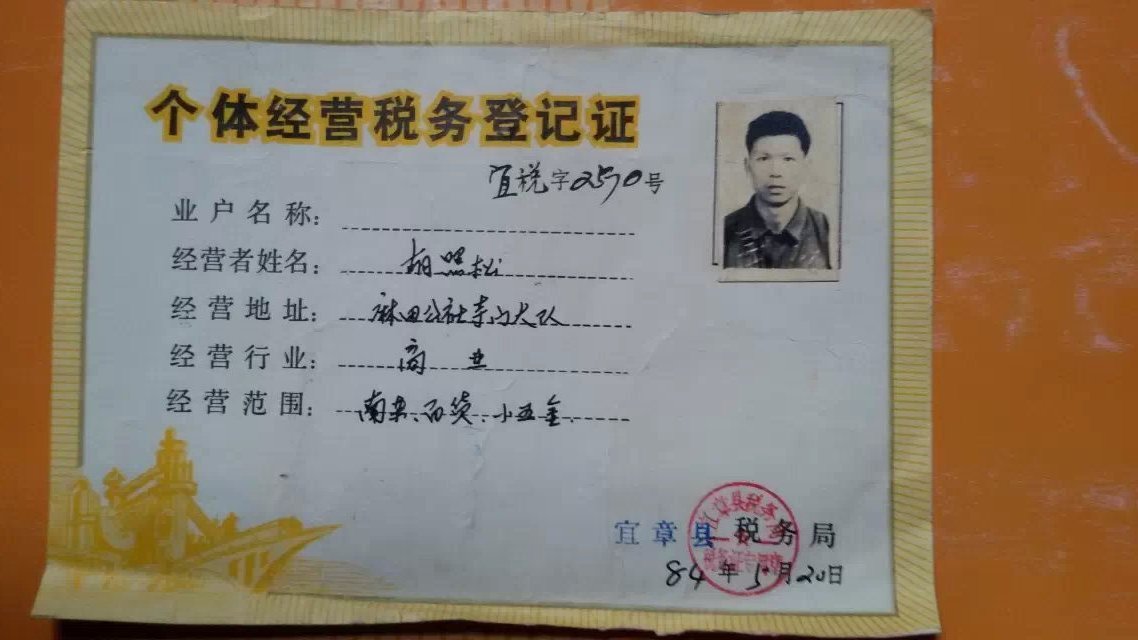 个体经营税务登记证
宜税字2570号
业户名称：
经营者姓名：胡照松
经营地址：麻田公社寺门大队
经营行业：商业
经营范围：南杂、百货、小五金.
宜章县税务局
84年5月20日
宜章县税务局